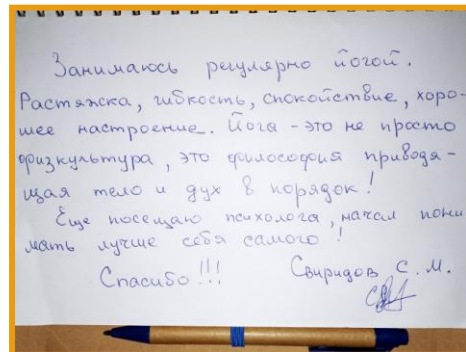 Занимаюсь регулярно йогой.
Растяжка, гибкость, спокойствие, хоро-
шее настроение. Йога - это не просто
физкультура, это философия приводя-
щая тело и дух в порядок!
Еще посещаю психолога, начал пони
мать лучше себя самого!
Спасибо!!! Свиридов С. М.